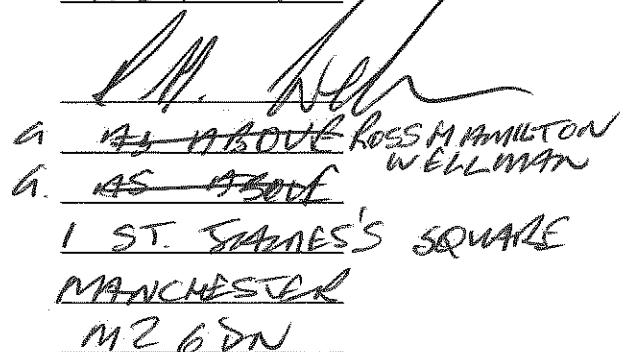 R.H. Wellman
a AS ABOVE ROSS HAMILTON
WELLMAN
a. AS ABOVE
1 ST. JAMES'S SQUARE
MANCHESTER
M2 6DN